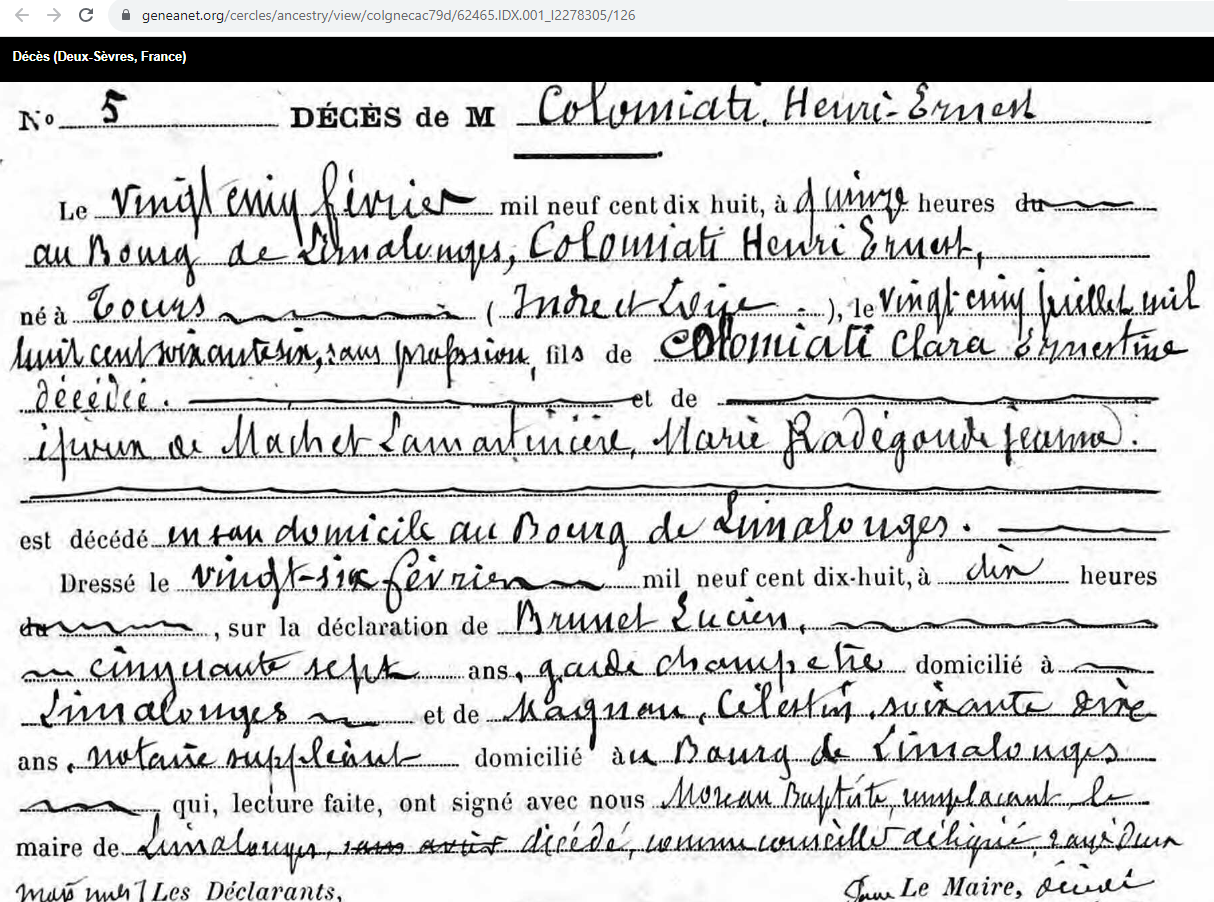 geneanet.org/cercles/ancestry/view/colgnecac79d/62465.IDX.001_I2278305/126
Décès (Deux-Sèvres, France)
No 5 DÉCÈS de M Colomiati, Henri-Ernest
Le vingt cinq février mil neuf cent dix huit, à quinze heures du
au Bourg de Limalonges, Colomiati Henri Ernest,
né à Tours à (Indre et Loire), le vingt cinq juillet mil
huit cent soixante six, sans profession, fils de Colomiati Clara Ernestine
décédée. et de
époux de Machet Lamartinière, Marie Radégonde Jeanne.
est décédé en son domicile au Bourg de Limalonges.
Dressé le vingt-six février mil neuf cent dix-huit, à dix heures
du, sur la déclaration de Brunet Lucien,
cinquante sept ans, garde champetre domicilié à
Limalonges et de Magnan, Célestin, soixante
ans, notaire suppléant domicilié àu Bourg de Limalonges
, qui, lecture faite, ont signé avec nous Moreau Baptiste, remplacant le
maire de Limalonges, décédé, comme conseiller délégué, rayé deux
mots nuls Les Déclarants, Le Maire, décédé